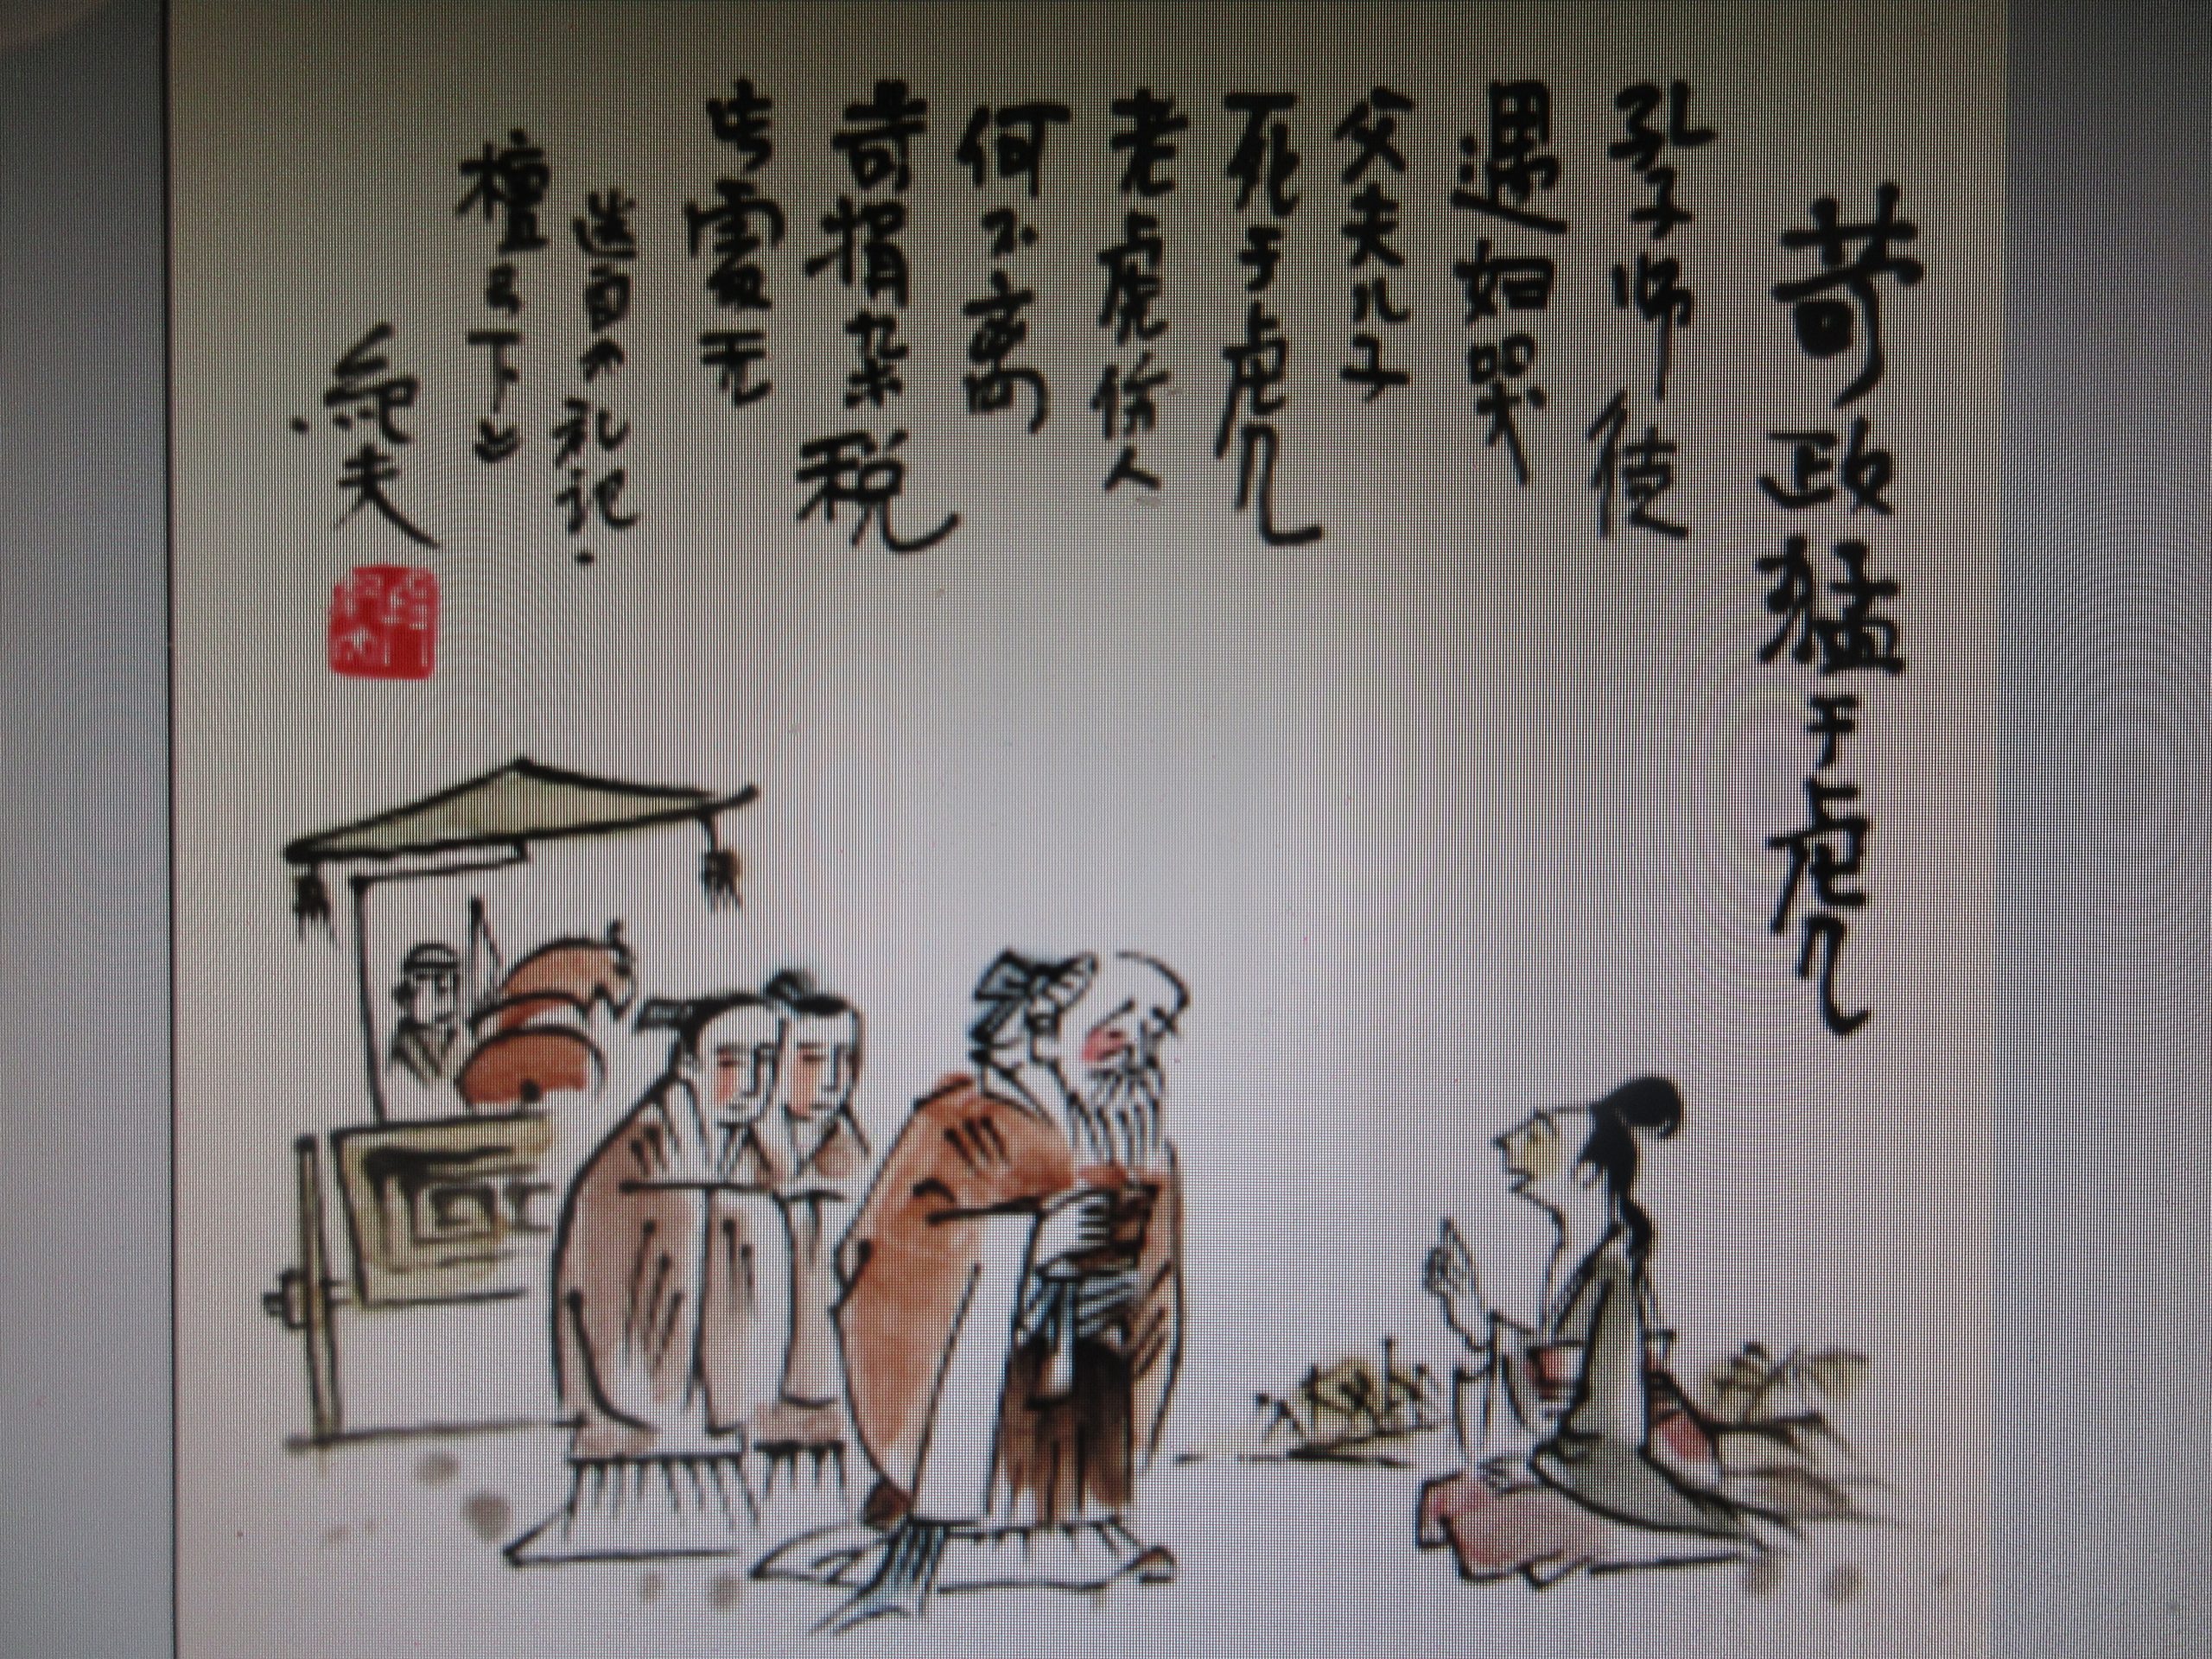 苛政猛于虎
孔子师徒
遇妇哭
父夫儿子
死于虎
老虎伤人
何不离
苛捐杂税
此处无
选自《礼记·
檀弓下》